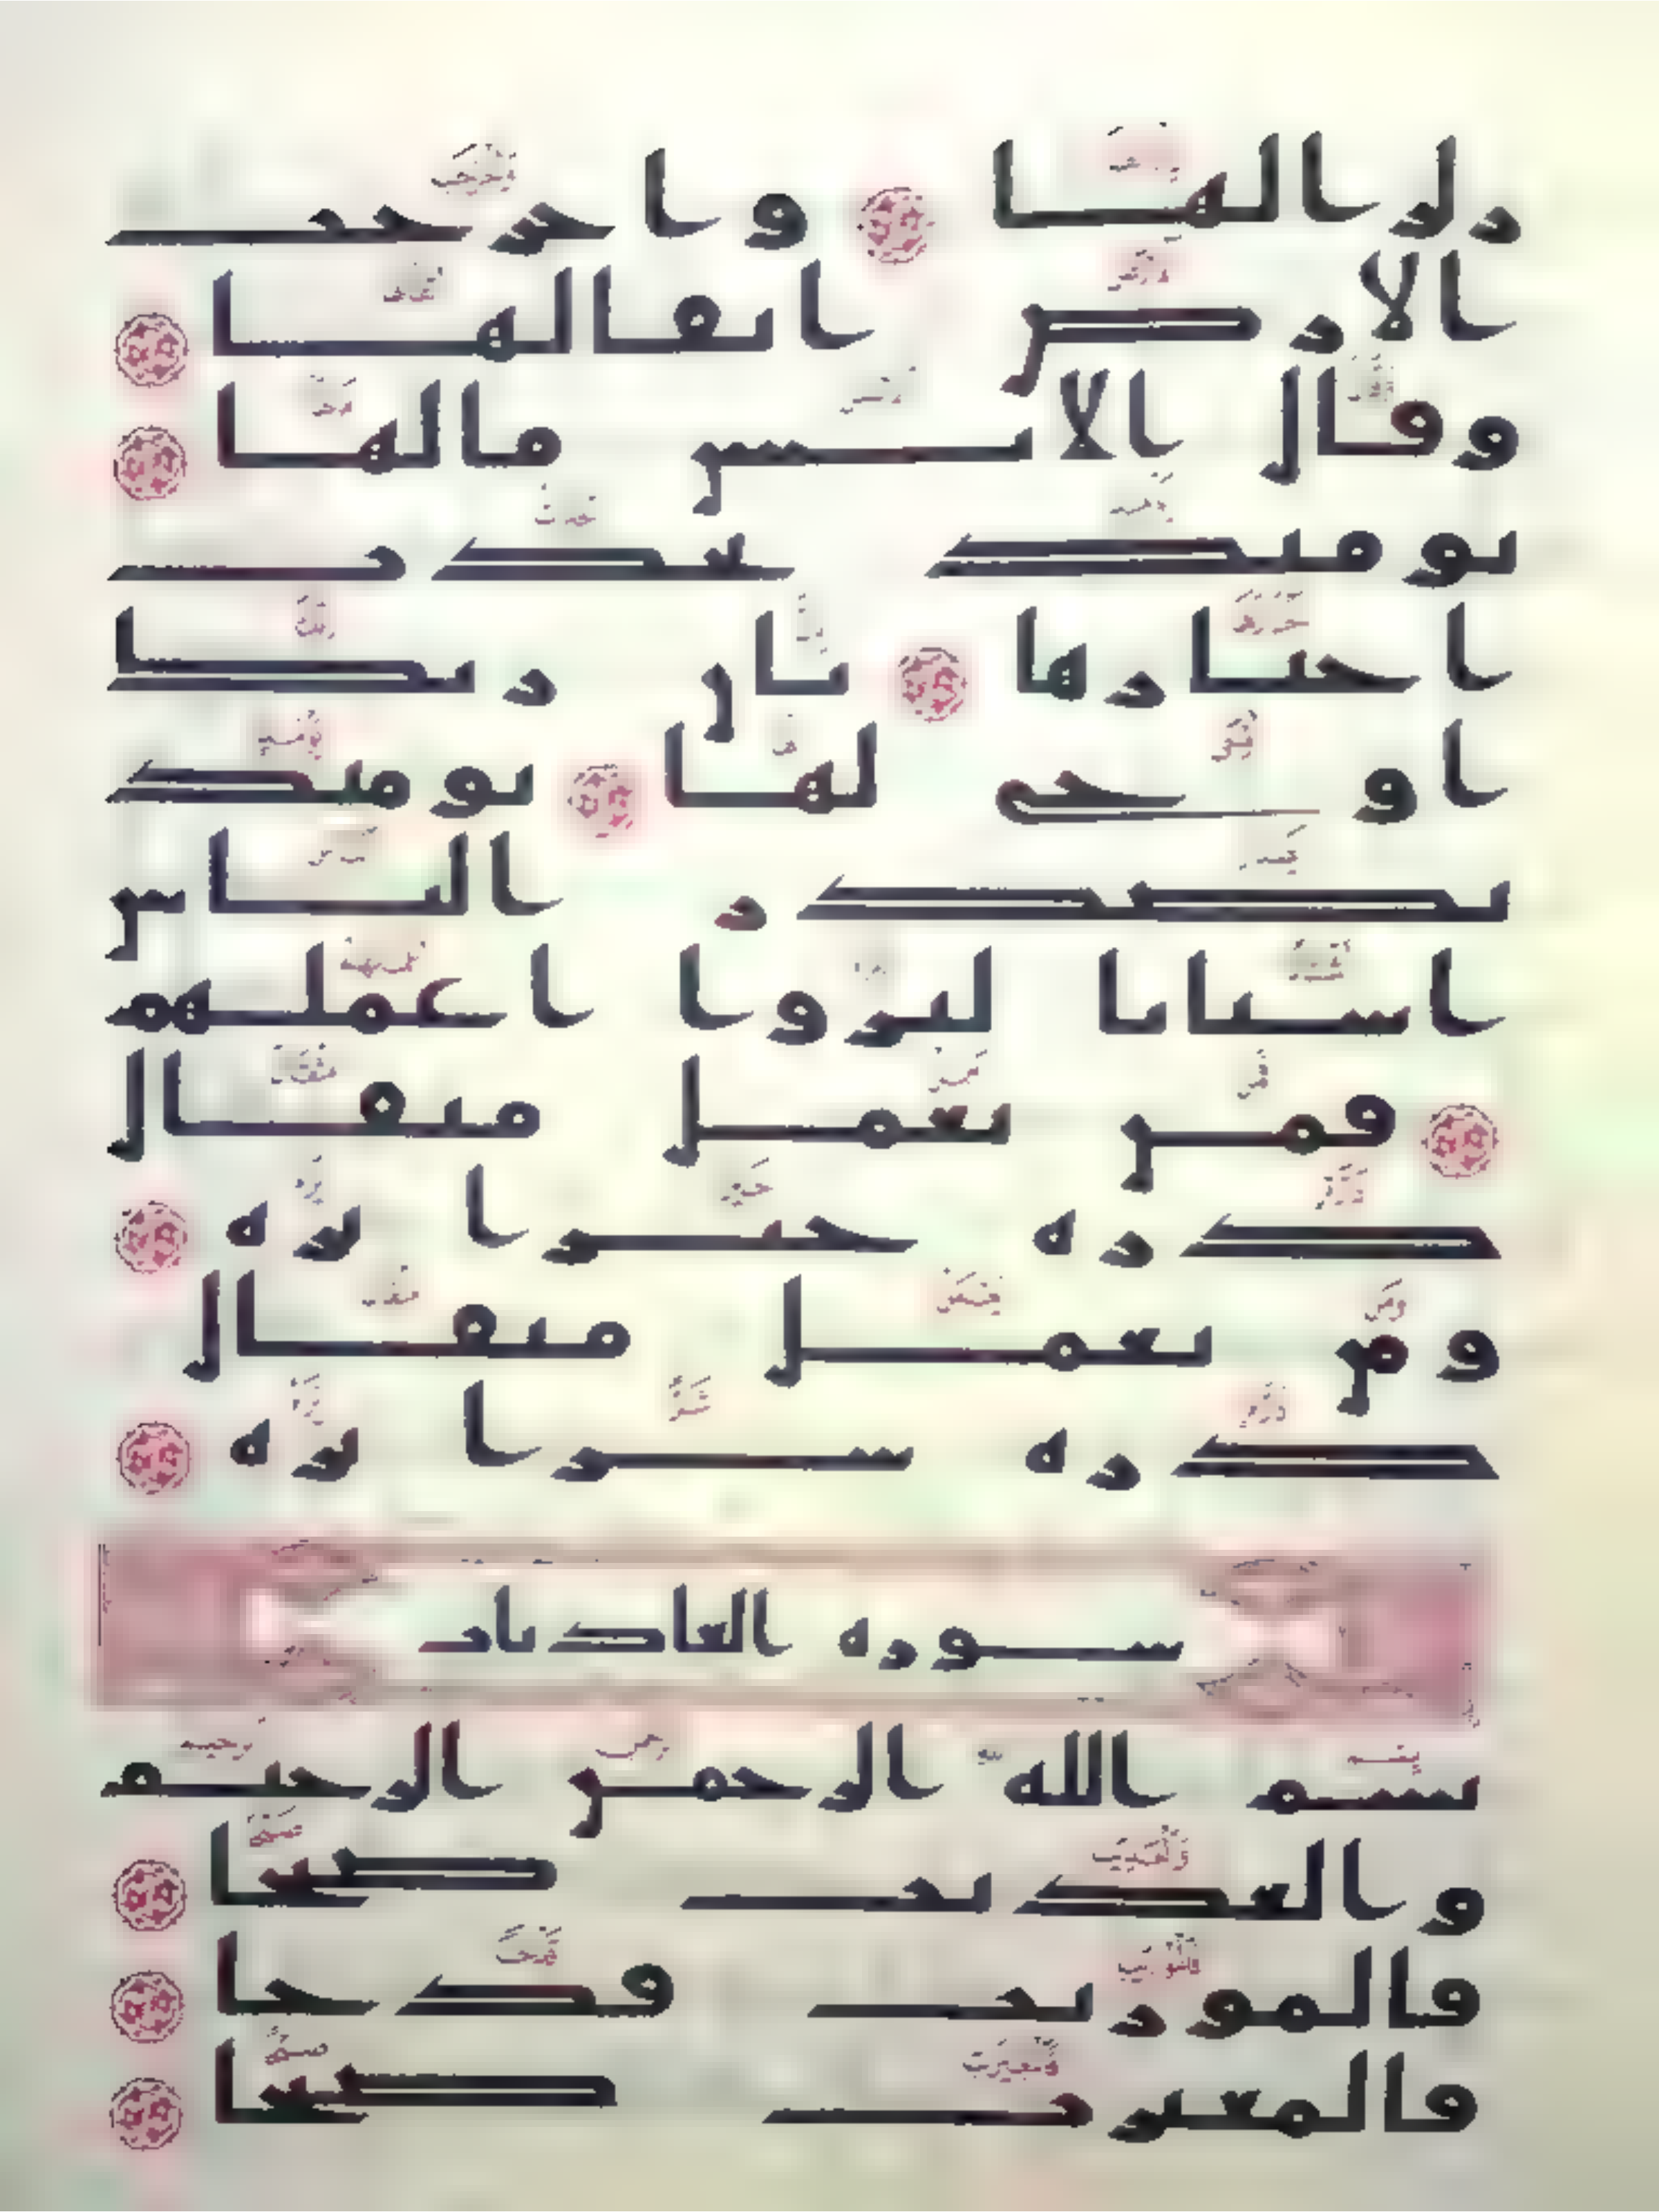 زلزالها واخرجت
الارض اثقالها
وقال الانسن مالها
يومئذ تحدث
اخبارها بان ربك
اوحى لها يومئذ
يصدر الناس
اشتاتا ليروا اعملهم
فمن يعمل مثقال
ذره خيرا يره
ومن يعمل مثقال
ذره شرا يره
سوره العاديات
بسم الله الرحمن الرحيم
والعديت ضبحا
فالموريت قدحا
فالمغيرت صبحا